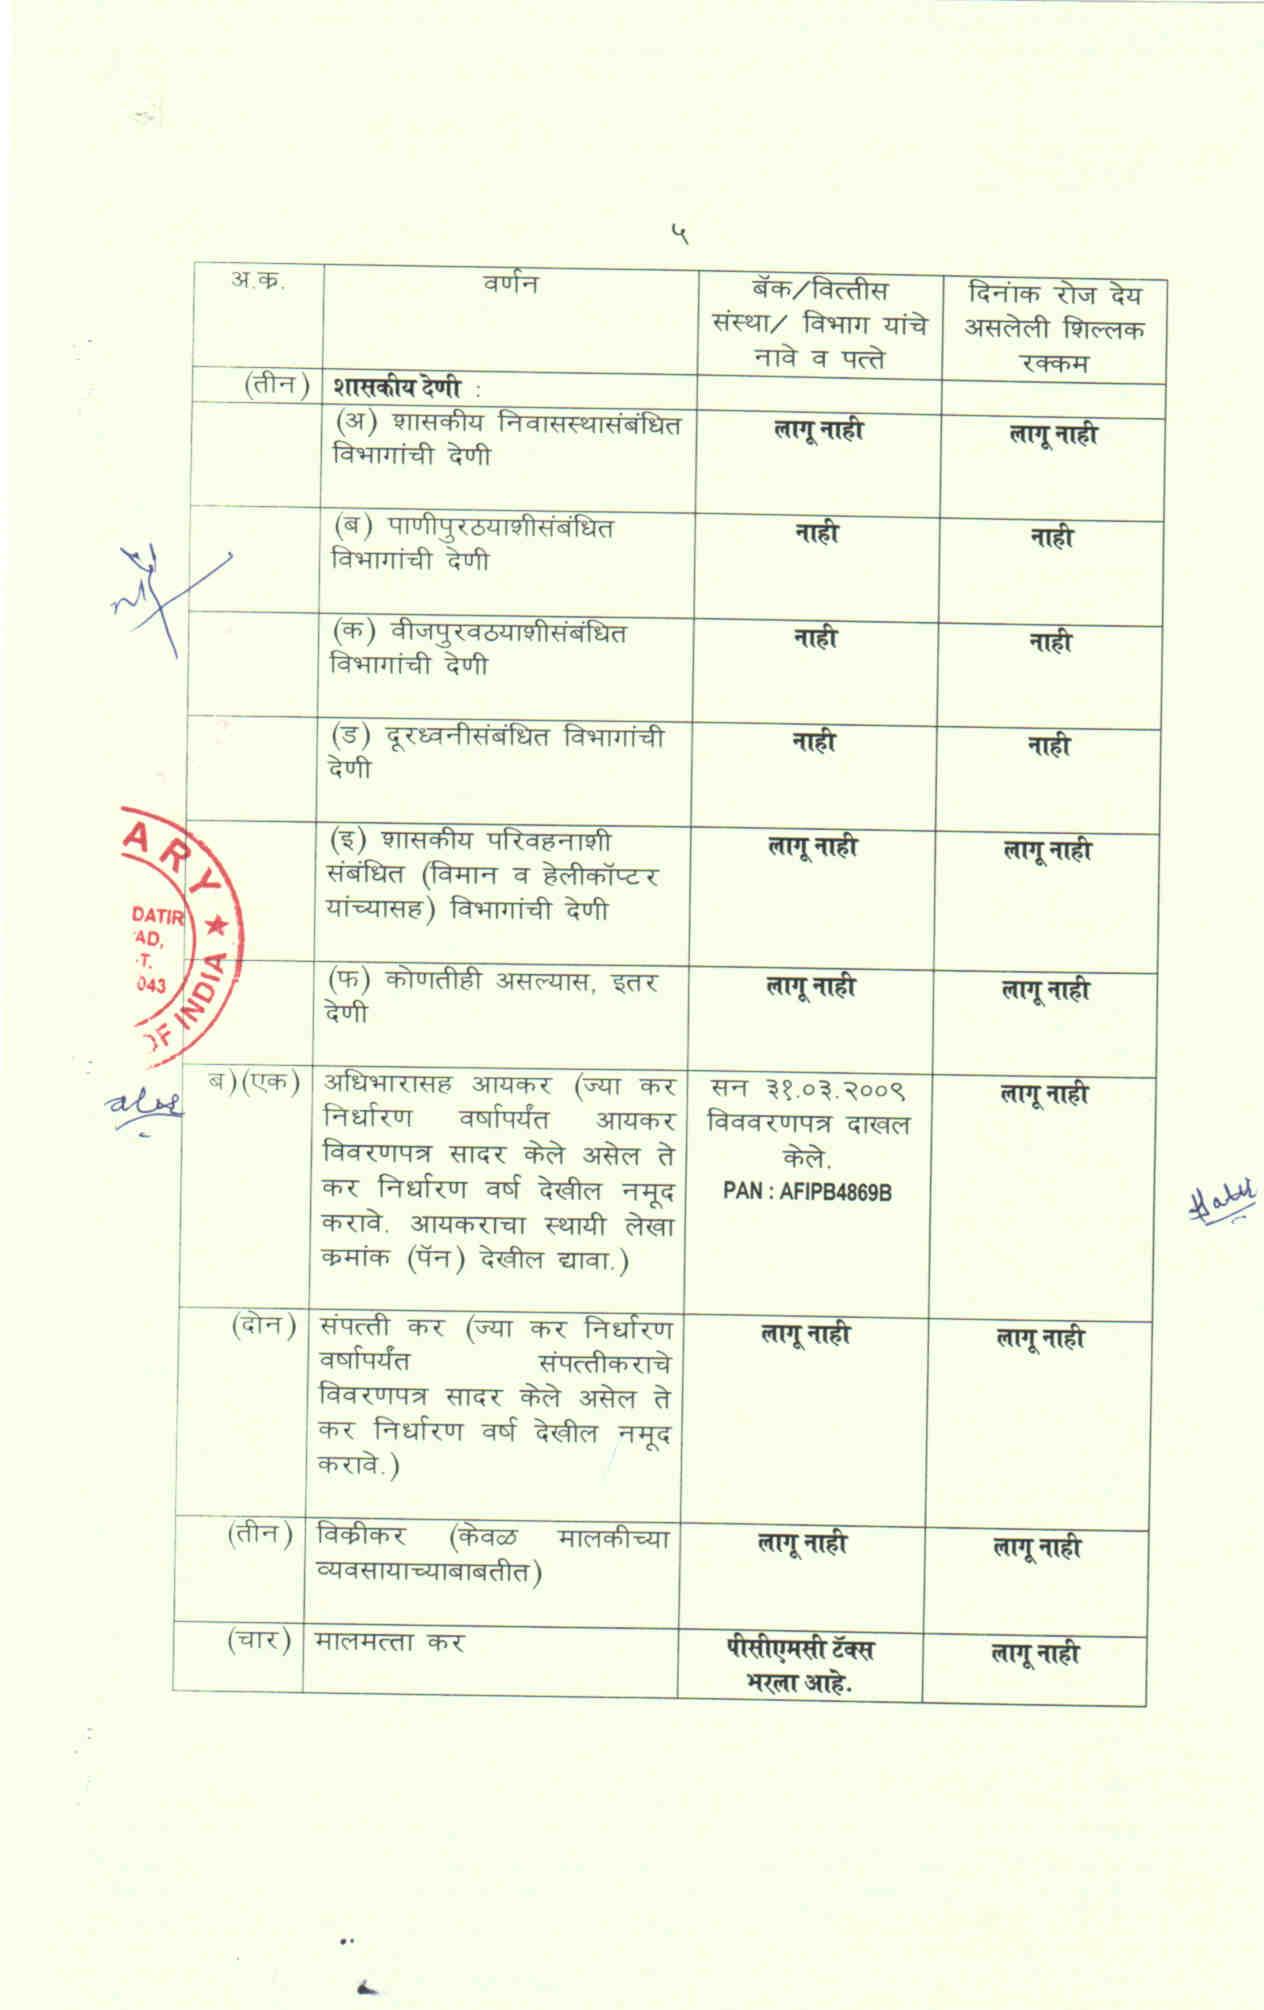 ५
अ.क्र. वर्णन बँक/वित्तीस दिनांक रोज देय
संस्था/ विभाग यांचे असलेली शिल्लक
नावे व पत्ते रक्कम
(तीन) शासकीय देणी :
(अ) शासकीय निवासस्थासंबंधित लागू नाही लागू नाही
विभागांची देणी
(ब) पाणीपुरठयाशीसंबंधित नाही नाही
विभागांची देणी
(क) वीजपुरवठयाशीसंबंधित नाही नाही
विभागांची देणी
(ड) दूरध्वनीसंबंधित विभागांची नाही नाही
देणी
(इ) शासकीय परिवहनाशी लागू नाही लागू नाही
संबंधित (विमान व हेलीकॉप्टर
यांच्यासह) विभागांची देणी
(फ) कोणतीही असल्यास, इतर लागू नाही लागू नाही
देणी
ब)(एक) अधिभारासह आयकर (ज्या कर सन ३१.०३.२००९ लागू नाही
निर्धारण वर्षापर्यंत आयकर विववरणपत्र दाखल
विवरणपत्र सादर केले असेल ते केले.
कर निर्धारण वर्ष देखील नमूद PAN : AFIPB4869B
करावे. आयकराचा स्थायी लेखा
क्रमांक (पॅन) देखील द्यावा.)
(दोन) संपत्ती कर (ज्या कर निर्धारण लागू नाही लागू नाही
वर्षापर्यंत संपत्तीकराचे
विवरणपत्र सादर केले असेल ते
कर निर्धारण वर्ष देखील नमूद
करावे.)
(तीन) विक्रीकर (केवळ मालकीच्या लागू नाही लागू नाही
व्यवसायाच्याबाबतीत)
(चार) मालमत्ता कर पीसीएमसी टॅक्स लागू नाही
भरला आहे.
ARY ★
DATIR
AD,
T.
043
OF INDIA